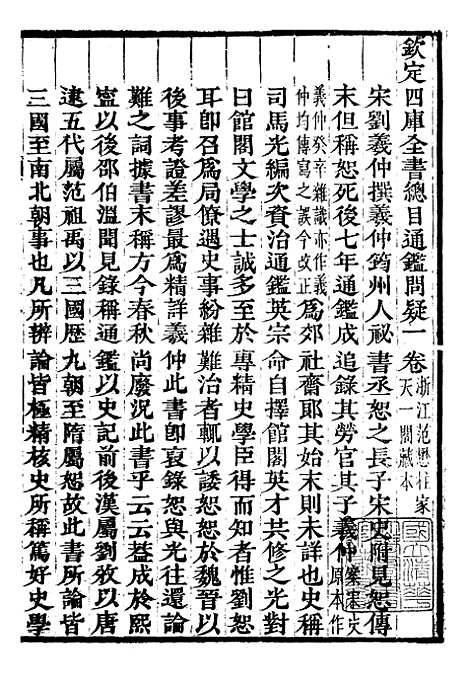 欽定四庫全書總目通鑑問疑一卷浙江范懋柱家天一閣藏本
宋劉羲仲撰羲仲筠州人祕書丞恕之長子宋史附見恕傳
末但稱恕死後七年通鑑成追錄其勞官其子羲仲案宋史原本作
義仲癸辛雜識亦作義仲均傳寫之誤今改正爲郊社齋郎其始末則未詳也史稱
司馬光編次資治通鑑英宗命自擇館閣英才共修之光對
曰館閣文學之士誠多至於專精史學臣得而知者惟劉恕
耳卽召爲局僚遇史事紛雜難治者輒以諉恕恕於魏晉以
後事考證差謬最爲精詳羲仲此書卽裒錄恕與光往還論
難之詞據書末稱方今春秋尚廢況此書乎云云葢成於熙
寧以後邵伯溫聞見錄稱通鑑以史記前後漢屬劉攽以唐
逮五代屬范祖禹以三國歷九朝至隋屬恕故此書所論皆
三國至南北朝事也凡所辨論皆極精核史所稱篤好史學